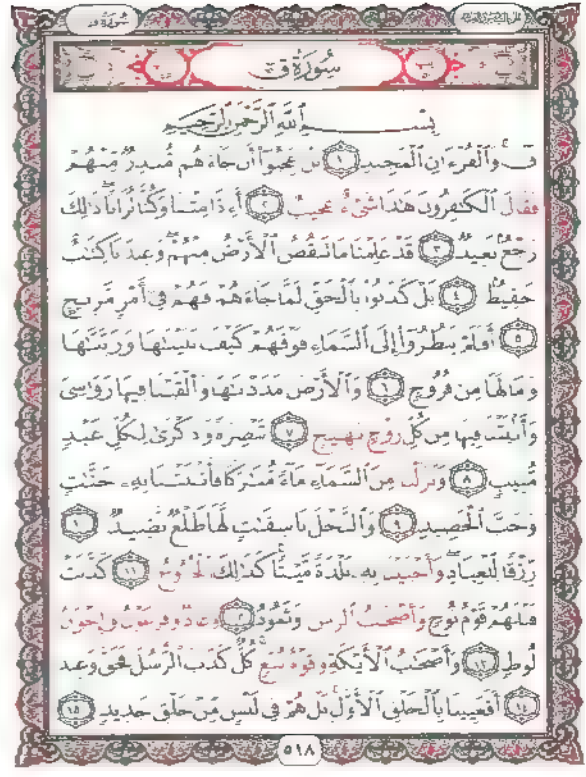 سُورَةُ ق
سُورَةُ ق
بِسْمِ ٱللَّهِ ٱلرَّحْمَٰنِ ٱلرَّحِيمِ
قٓ وَٱلْقُرْءَانِ ٱلْمَجِيدِ ١ بَلْ عَجِبُوٓا۟ أَن جَآءَهُم مُّنذِرٌ مِّنْهُمْ
فَقَالَ ٱلْكَٰفِرُونَ هَٰذَا شَىْءٌ عَجِيبٌ ٢ أَءِذَا مِتْنَا وَكُنَّا تُرَابًا ذَٰلِكَ
رَجْعٌۢ بَعِيدٌ ٣ قَدْ عَلِمْنَا مَا تَنقُصُ ٱلْأَرْضُ مِنْهُمْ وَعِندَنَا كِتَٰبٌ
حَفِيظٌۢ ٤ بَلْ كَذَّبُوا۟ بِٱلْحَقِّ لَمَّا جَآءَهُمْ فَهُمْ فِىٓ أَمْرٍ مَّرِيجٍ
٥ أَفَلَمْ يَنظُرُوٓا۟ إِلَى ٱلسَّمَآءِ فَوْقَهُمْ كَيْفَ بَنَيْنَٰهَا وَزَيَّنَّٰهَا
وَمَا لَهَا مِن فُرُوجٍ ٦ وَٱلْأَرْضَ مَدَدْنَٰهَا وَأَلْقَيْنَا فِيهَا رَوَٰسِىَ
وَأَنۢبَتْنَا فِيهَا مِن كُلِّ زَوْجٍۭ بَهِيجٍ ٧ تَبْصِرَةً وَذِكْرَىٰ لِكُلِّ عَبْدٍ
مُّنِيبٍ ٨ وَنَزَّلْنَا مِنَ ٱلسَّمَآءِ مَآءً مُّبَٰرَكًا فَأَنۢبَتْنَا بِهِۦ جَنَّٰتٍ
وَحَبَّ ٱلْحَصِيدِ ٩ وَٱلنَّخْلَ بَاسِقَٰتٍ لَّهَا طَلْعٌ نَّضِيدٌ ١٠
رِّزْقًا لِّلْعِبَادِ وَأَحْيَيْنَا بِهِۦ بَلْدَةً مَّيْتًا كَذَٰلِكَ ٱلْخُرُوجُ ١١ كَذَّبَتْ
قَبْلَهُمْ قَوْمُ نُوحٍ وَأَصْحَٰبُ ٱلرَّسِّ وَثَمُودُ ١٢ وَعَادٌ وَفِرْعَوْنُ وَإِخْوَٰنُ
لُوطٍ ١٣ وَأَصْحَٰبُ ٱلْأَيْكَةِ وَقَوْمُ تُبَّعٍ كُلٌّ كَذَّبَ ٱلرُّسُلَ فَحَقَّ وَعِيدِ
١٤ أَفَعَيِينَا بِٱلْخَلْقِ ٱلْأَوَّلِ بَلْ هُمْ فِى لَبْسٍ مِّنْ خَلْقٍ جَدِيدٍ ١٥
٥١٨